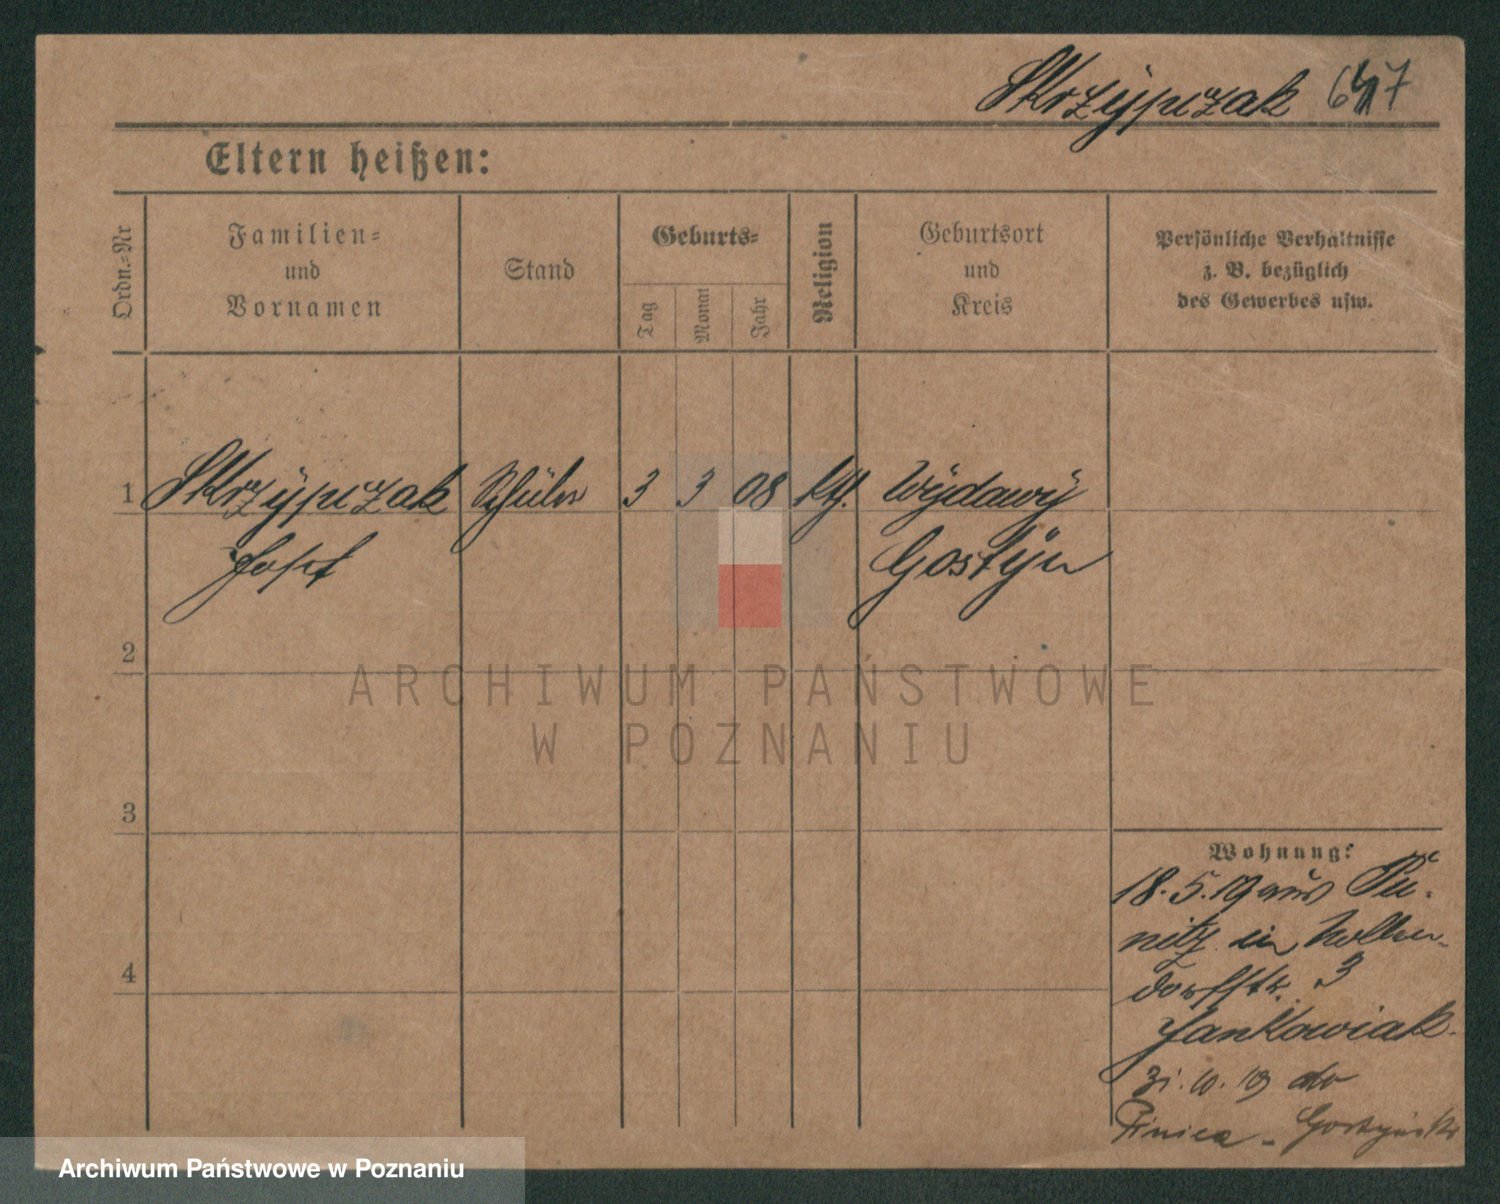 Skrzÿpczak 647
Eltern heißen:
Ordn.-Nr
Familien-
und
Vornamen
Stand
Geburts-
Tag
Monat
Jahr
Religion
Geburtsort
und
Kreis
Persönliche Verhältnisse
z. B. bezüglich
des Gewerbes usw.
1 Skrzÿpczak Schüler 3 3 08 kth. Wÿdawÿ
Josef Gostÿn
2
3
4
Wohnung:
18.5.19 aus Pu-
nitz in Nollen-
dorffstr. 3
Jankowiak.
31.10.19 do
- Gostyński
ARCHIWUM PAŃSTWOWE
W POZNANIU
Archiwum Państwowe w Poznaniu